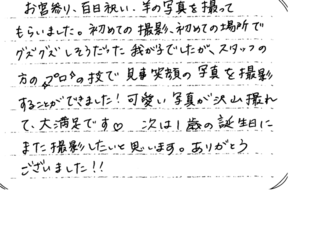 お宮参り、百日祝い、羊の写真を撮って
もらいました。初めての撮影、初めての場所で
グズグズしそうだった我が子でしたが、スタッフの
方の〝プロ〟の技で見事笑顔の写真を撮影
することができました！可愛い写真が沢山撮れ
て、大満足です♡ 次は1歳の誕生日に
また撮影したいと思います。ありがとう
ございました!!